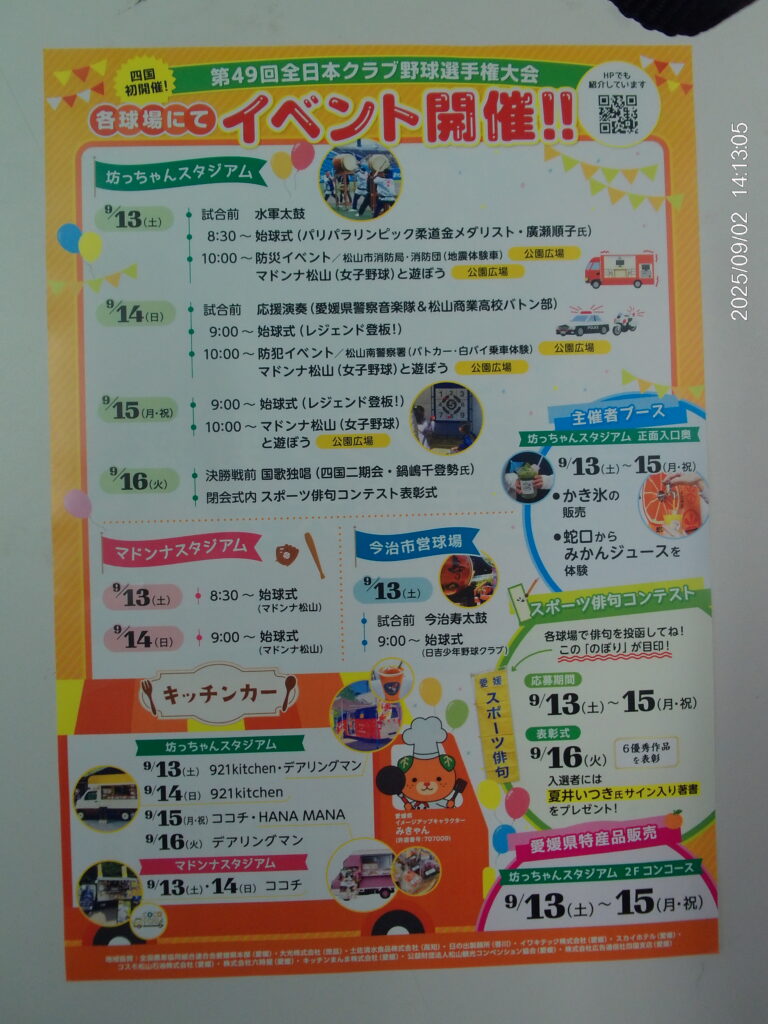 四国
初開催!
第49回全日本クラブ野球選手権大会
HPでも
紹介しています
各球場にて
イベント開催!!
坊っちゃんスタジアム
9/13(土)
試合前 水軍太鼓
8:30～ 始球式(パリパラリンピック柔道金メダリスト・廣瀬順子氏)
10:00～ 防災イベント/松山市消防局・消防団(地震体験車) 公園広場
マドンナ松山(女子野球)と遊ぼう 公園広場
9/14(日)
試合前 応援演奏(愛媛県警察音楽隊&松山商業高校バトン部)
9:00～ 始球式(レジェンド登板!)
10:00～ 防犯イベント/松山南警察署(パトカー・白バイ乗車体験) 公園広場
マドンナ松山(女子野球)と遊ぼう 公園広場
9/15(月・祝)
9:00～ 始球式(レジェンド登板!)
10:00～ マドンナ松山(女子野球)
と遊ぼう 公園広場
9/16(火)
決勝戦前 国歌独唱(四国二期会・鍋嶋千登勢氏)
閉会式内 スポーツ俳句コンテスト表彰式
主催者ブース
坊っちゃんスタジアム 正面入口奥
9/13(土)～15(月・祝)
•かき氷の
販売
•蛇口から
みかんジュースを
体験
マドンナスタジアム
9/13(土) 8:30～ 始球式
(マドンナ松山)
9/14(日) 9:00～ 始球式
(マドンナ松山)
今治市営球場
9/13(土)
試合前 今治寿太鼓
9:00～ 始球式
(日吉少年野球クラブ)
スポーツ俳句コンテスト
各球場で俳句を投函してね!
この「のぼり」が目印!
愛媛
スポーツ俳句
応募期間
9/13(土)～15(月・祝)
表彰式
9/16(火)
6優秀作品
を表彰
入選者には
夏井いつき氏サイン入り著書
をプレゼント!
キッチンカー
坊っちゃんスタジアム
9/13(土) 921kitchen・デアリングマン
9/14(日) 921kitchen
9/15(月・祝) ココチ・HANA MANA
9/16(火) デアリングマン
マドンナスタジアム
9/13(土)・14(日) ココチ
愛媛県
イメージアップキャラクター
みきゃん
(許諾番号:707009)
愛媛県特産品販売
坊っちゃんスタジアム 2Fコンコース
9/13(土)～15(月・祝)
2025/09/02 14:13:05